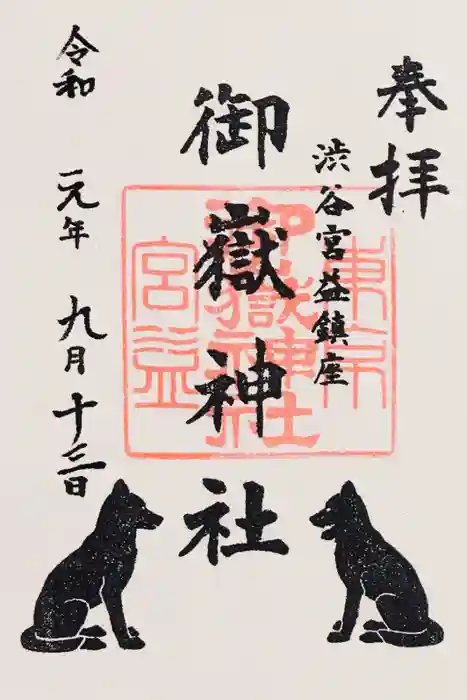 奉拝
渋谷宮益鎮座
御嶽神社
令和 元年 九月 十三日
東京
御嶽神社
宮益